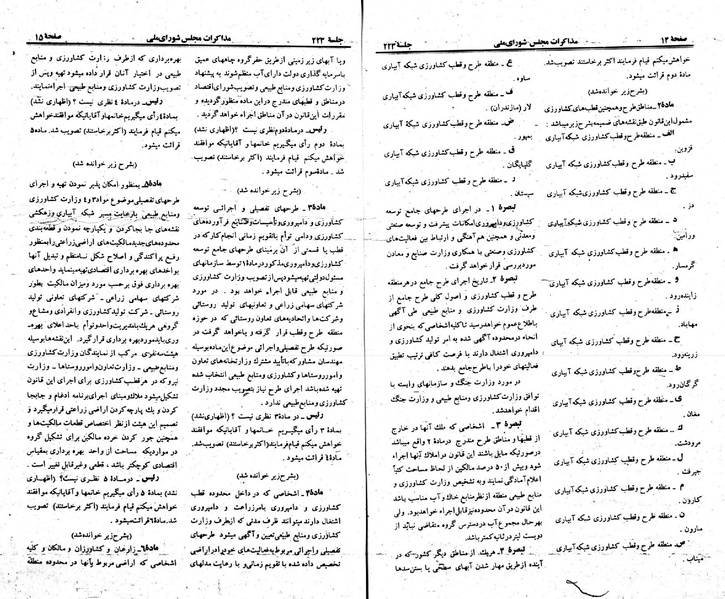 صفحهٔ ۱۴
مذاکرات مجلس شورای ملی
جلسهٔ ۲۲۳
خواهش میکنم قیام فرمایند (اکثر برخاستند) تصویب شد.
مادهٔ دوم قرائت میشود.
(بشرح زیر خوانده شد)
مادهٔ ۲ـ مناطق طرح و همچنین قطب‌های کشاورزی
مشمول این قانون طبق نقشه‌های ضمیمه بشرح زیر میباشد:
الف ـ منطقه طرح و قطب کشاورزی شبکه آبیاری
قزوین.
ب ـ منطقه طرح و قطب کشاورزی شبکه آبیاری
سفیدرود.
ج ـ منطقه طرح و قطب کشاورزی شبکه آبیاری
دز.
د ـ منطقه طرح و قطب کشاورزی شبکه آبیاری
ورامین.
ه ـ منطقه طرح و قطب کشاورزی شبکه آبیاری
گرمسار.
و ـ منطقه طرح و قطب کشاورزی شبکه آبیاری
زاینده‌رود.
ز ـ منطقه طرح و قطب کشاورزی شبکه آبیاری
مهاباد.
ح ـ منطقه طرح و قطب کشاورزی شبکه آبیاری
زرینه‌رود.
ط ـ منطقه طرح و قطب کشاورزی شبکه آبیاری
گرگان‌رود.
ی ـ منطقه طرح و قطب کشاورزی شبکه آبیاری
مغان.
ک ـ منطقه طرح و قطب کشاورزی شبکه آبیاری
مرودشت.
ل ـ منطقه طرح و قطب کشاورزی شبکه آبیاری
جیرفت.
م ـ منطقه طرح و قطب کشاورزی شبکه آبیاری
کارون.
ن ـ منطقه طرح و قطب کشاورزی شبکه آبیاری
مارون.
ص ـ منطقه طرح و قطب کشاورزی شبکه آبیاری
میناب.
ع ـ منطقه طرح و قطب کشاورزی شبکه آبیاری
ساوه.
ف ـ منطقه طرح و قطب کشاورزی شبکه آبیاری
لار (مازندران).
ض ـ منطقه طرح و قطب کشاورزی شبکه آبیاری
بمپور.
ق ـ منطقه طرح و قطب کشاورزی شبکه آبیاری
گلپایگان.
ر ـ منطقه طرح و قطب کشاورزی شبکه آبیاری
سیستان.
تبصرهٔ ۱ ـ در اجرای طرحهای جامع توسعه
کشاورزی و دامپروری امکانات پیشرفت و توسعه صنعتی
ومعدنی و همچنین هم‌آهنگی و ارتباط بین فعالیت‌های
کشاورزی وصنعتی با همکاری وزارت صنایع و معادن
مورد بررسی قرار خواهد گرفت.
تبصرهٔ ۲ـ تاریخ اجرای طرح جامع در هر منطقه
طرح و قطب کشاورزی و اصول کلی طرح جامع از
طرف وزارت کشاورزی و منابع طبیعی طی آگهی
باطلاع عموم خواهد رسید تا کلیه اشخاصی که بنحوی از
انحاء در محدوده آگهی شده به امر تولید کشاورزی و
دامپروری اشتغال دارند با فرصت کافی ترتیب تطبیق
فعالیتهای خود را با طرح جامع بدهند.
در مورد وزارت جنگ و سازمانهای وابسته با
توافق وزارت کشاورزی و منابع طبیعی و وزارت جنگ
اقدام خواهد شد.
تبصرهٔ ۳ ـ اشخاصی که ملک آنها در خارج
از قطبها و مناطق طرح مندرج درمادهٔ ۲ واقع میباشد
درصورتیکه مایل باشند این قانون در املاک آنها اجراء
شود وبیش از ۵۰ درصد مالکین از لحاظ مساحت کتباً
اعلام آمادگی نمایند و به تشخیص وزارت کشاورزی و
منابع طبیعی منطقه از نظر منابع خاک و آب مناسب باشد
این قانون در آن محدوده نیز قابل اجراء خواهد بود. ولی
بهرحال مجموع آب دردسترس گروه متقاضی نباید از
دویست لیتر در ثانیه کمتر باشد.
تبصرهٔ ۴ ـ هریک از مناطق دیگر کشور که در
آینده از طریق مهار شدن آبهای سطحی یا ستن سدها
جلسهٔ ۲۲۳
مذاکرات مجلس شورای ملی
صفحهٔ ۱۵
ویا آبهای زیرزمینی ازطریق حفر گروه چاههای عمیق
با سرمایه گذاری دولت دارای آب منظم شوند به پیشنهاد
وزارت کشاورزی و منابع طبیعی و تصویب شورای اقتصاد
درمناطق و قطبهای مندرج در این ماده منظور گردیده و
مقررات این قانون در آن مناطق اجراء خواهد گردید.
رئیس ـ در ماده دوم نظری نیست؟ (اظهاری نشد)
بمادهٔ دوم رأی میگیریم خانمها و آقایانیکه موافقند
خواهش میکنم قیام فرمایند (اکثر برخاستند) تصویب
شد. مادهٔ سوم قرائت میشود.
(بشرح زیر خوانده شد)
مادهٔ ۳ـ طرحهای تفصیلی و اجرائی توسعه
کشاورزی و دامپروری و تأسیسات و صنایع فرآورده‌های
کشاورزی ودامی توأم با تقویم زمانی انجام کار که در
قطب یا قسمتی از آن برمبنای طرحهای جامع توسعه
کشاورزی و دامپروری مذکور در مادهٔ ۱ توسط سازمانهای
مسئول دولتی تهیه میشود پس از تصویب وزارت کشاورزی
و منابع طبیعی قابل اجراء خواهد بود. در مورد
شرکتهای سهامی زراعی و تعاونیهای تولید روستائی
وشرکت‌ها و اتحادیه‌های تعاون روستائی که در حوزه
منطقه طرح وقطب قرار گرفته و یا خواهد گرفت در
صورتیکه طرح تفصیلی و اجرائی موضوع این ماده بوسیله
مهندسان مشاور که با تأیید مشترک وزارتخانه‌های تعاون
و امور روستاها و کشاورزی و منابع طبیعی انتخاب شده
تهیه شده باشد اجرای طرح نیاز بتصویب مجدد وزارت
کشاورزی و منابع طبیعی ندارد.
رئیس ـ در مادهٔ ۳ نظری نیست؟ (اظهاری نشد)
بمادهٔ ۳ رأی میگیریم خانمها و آقایانیکه موافقند
خواهش میکنم قیام فرمایند (اکثر برخاستند) تصویب شد.
مادهٔ ۴ قرائت میشود.
(بشرح زیر خوانده شد)
مادهٔ ۴ـ اشخاصی که در داخل محدوده قطب
کشاورزی و دامپروری بامر زراعت و دامپروری
اشتغال دارند میتوانند ظرف مدتی که ازطرف وزارت
کشاورزی و منابع طبیعی تعیین وآگهی میشود طرح
تفصیلی و اجرائی مربوط به فعالیت‌های خود در اراضی
تخصیص داده شده با تقویم زمانی و با رعایت مدلهای
بهره‌برداری که ازطرف وزارت کشاورزی و منابع
طبیعی در اختیار آنان قرار داده میشود تهیه وپس از
تصویب وزارت کشاورزی و منابع طبیعی اجراء نمایند.
رئیس ـ در مادهٔ ۴ نظری نیست؟ (اظهاری نشد)
بمادهٔ ۴ رأی میگیریم خانمها و آقایانیکه موافقند خواهش
میکنم قیام فرمایند (اکثر برخاستند) تصویب شد. مادهٔ ۵
قرائت میشود.
(بشرح زیر خوانده شد)
مادهٔ ۵ـ بمنظور امکان پذیر نمودن تهیه و اجرای
طرحهای تفصیلی موضوع مواد ۳ و ۴ وزارت کشاورزی
ومنابع طبیعی با رعایت مسیر شبکه آبیاری وزهکشی
نقشه‌های جا بجا کردن و یکپارچه نمودن و قطعه‌بندی
محدوده‌های جدید مالکیت‌های اراضی زراعی را بمنظور
رفع پراکندگی و اصلاح شکل نامنظم و تبدیل آنها
بواحدهای بهره برداری اقتصادی تهیه مینماید واحدهای
بهره برداری فوق برحسب مورد ومیزان مالکیت بطور
شرکتهای سهامی زراعی ـ شرکتهای تعاونی تولید
روستائی ـ شرکت تولید کشاورزی و انفرادی و مشاع و
گروهی هریک با مدیریت واحد و توأم باحد اعلای بهره‌ـ
وری باید مورد بهره برداری قرار گیرد. این نقشه‌ها بوسیله
هیئت سه نفری مرکب از نمایندگان وزارت کشاورزی
و منابع طبیعی ـ وزارت تعاون و امور روستاها ـ و وزارت
نیرو که در هر قطب کشاورزی برای اجرای این قانون
تشکیل میشود ملاک ومبنای اجرای برنامه ادغام و جابجا
کردن و یک پارچه کردن اراضی زراعی قرار میگیرد و
تصمیم این هیئت از نظر اختصاص قطعات مالکیت‌ها و
همچنین جور کردن خرده مالکین برای تشکیل گروه
در مواردیکه مساحت از واحد بهره برداری بمقیاس
اقتصادی کوچکتر باشد، قطعی وغیر قابل تغییر است.
رئیس ـ در مادهٔ ۵ نظری نیست؟ (اظهاری
نشد) بمادهٔ ۵ رأی میگیریم خانمها و آقایانیکه موافقند
خواهش میکنم قیام فرمایند (اکثر برخاستند) تصویب
شد. مادهٔ ۶ قرائت میشود.
(بشرح زیر خوانده شد)
مادهٔ ۶ـ زارعان و کشاورزان و مالکان و کلیه
اشخاصی که اراضی مربوط بآنها در محدوده منطقه